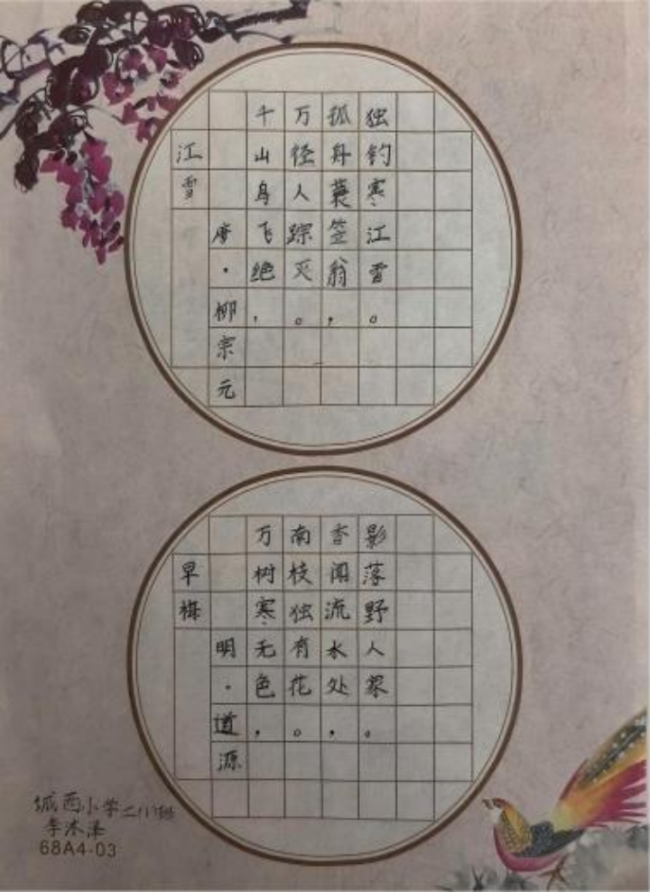 江雪
唐·柳宗元
千山鸟飞绝，
万径人踪灭。
孤舟蓑笠翁，
独钓寒江雪。
早梅
明·道源
万树寒无色，
南枝独有花。
香闻流水处，
影落野人家。
城西小学二八班
李沐泽
68A4-03